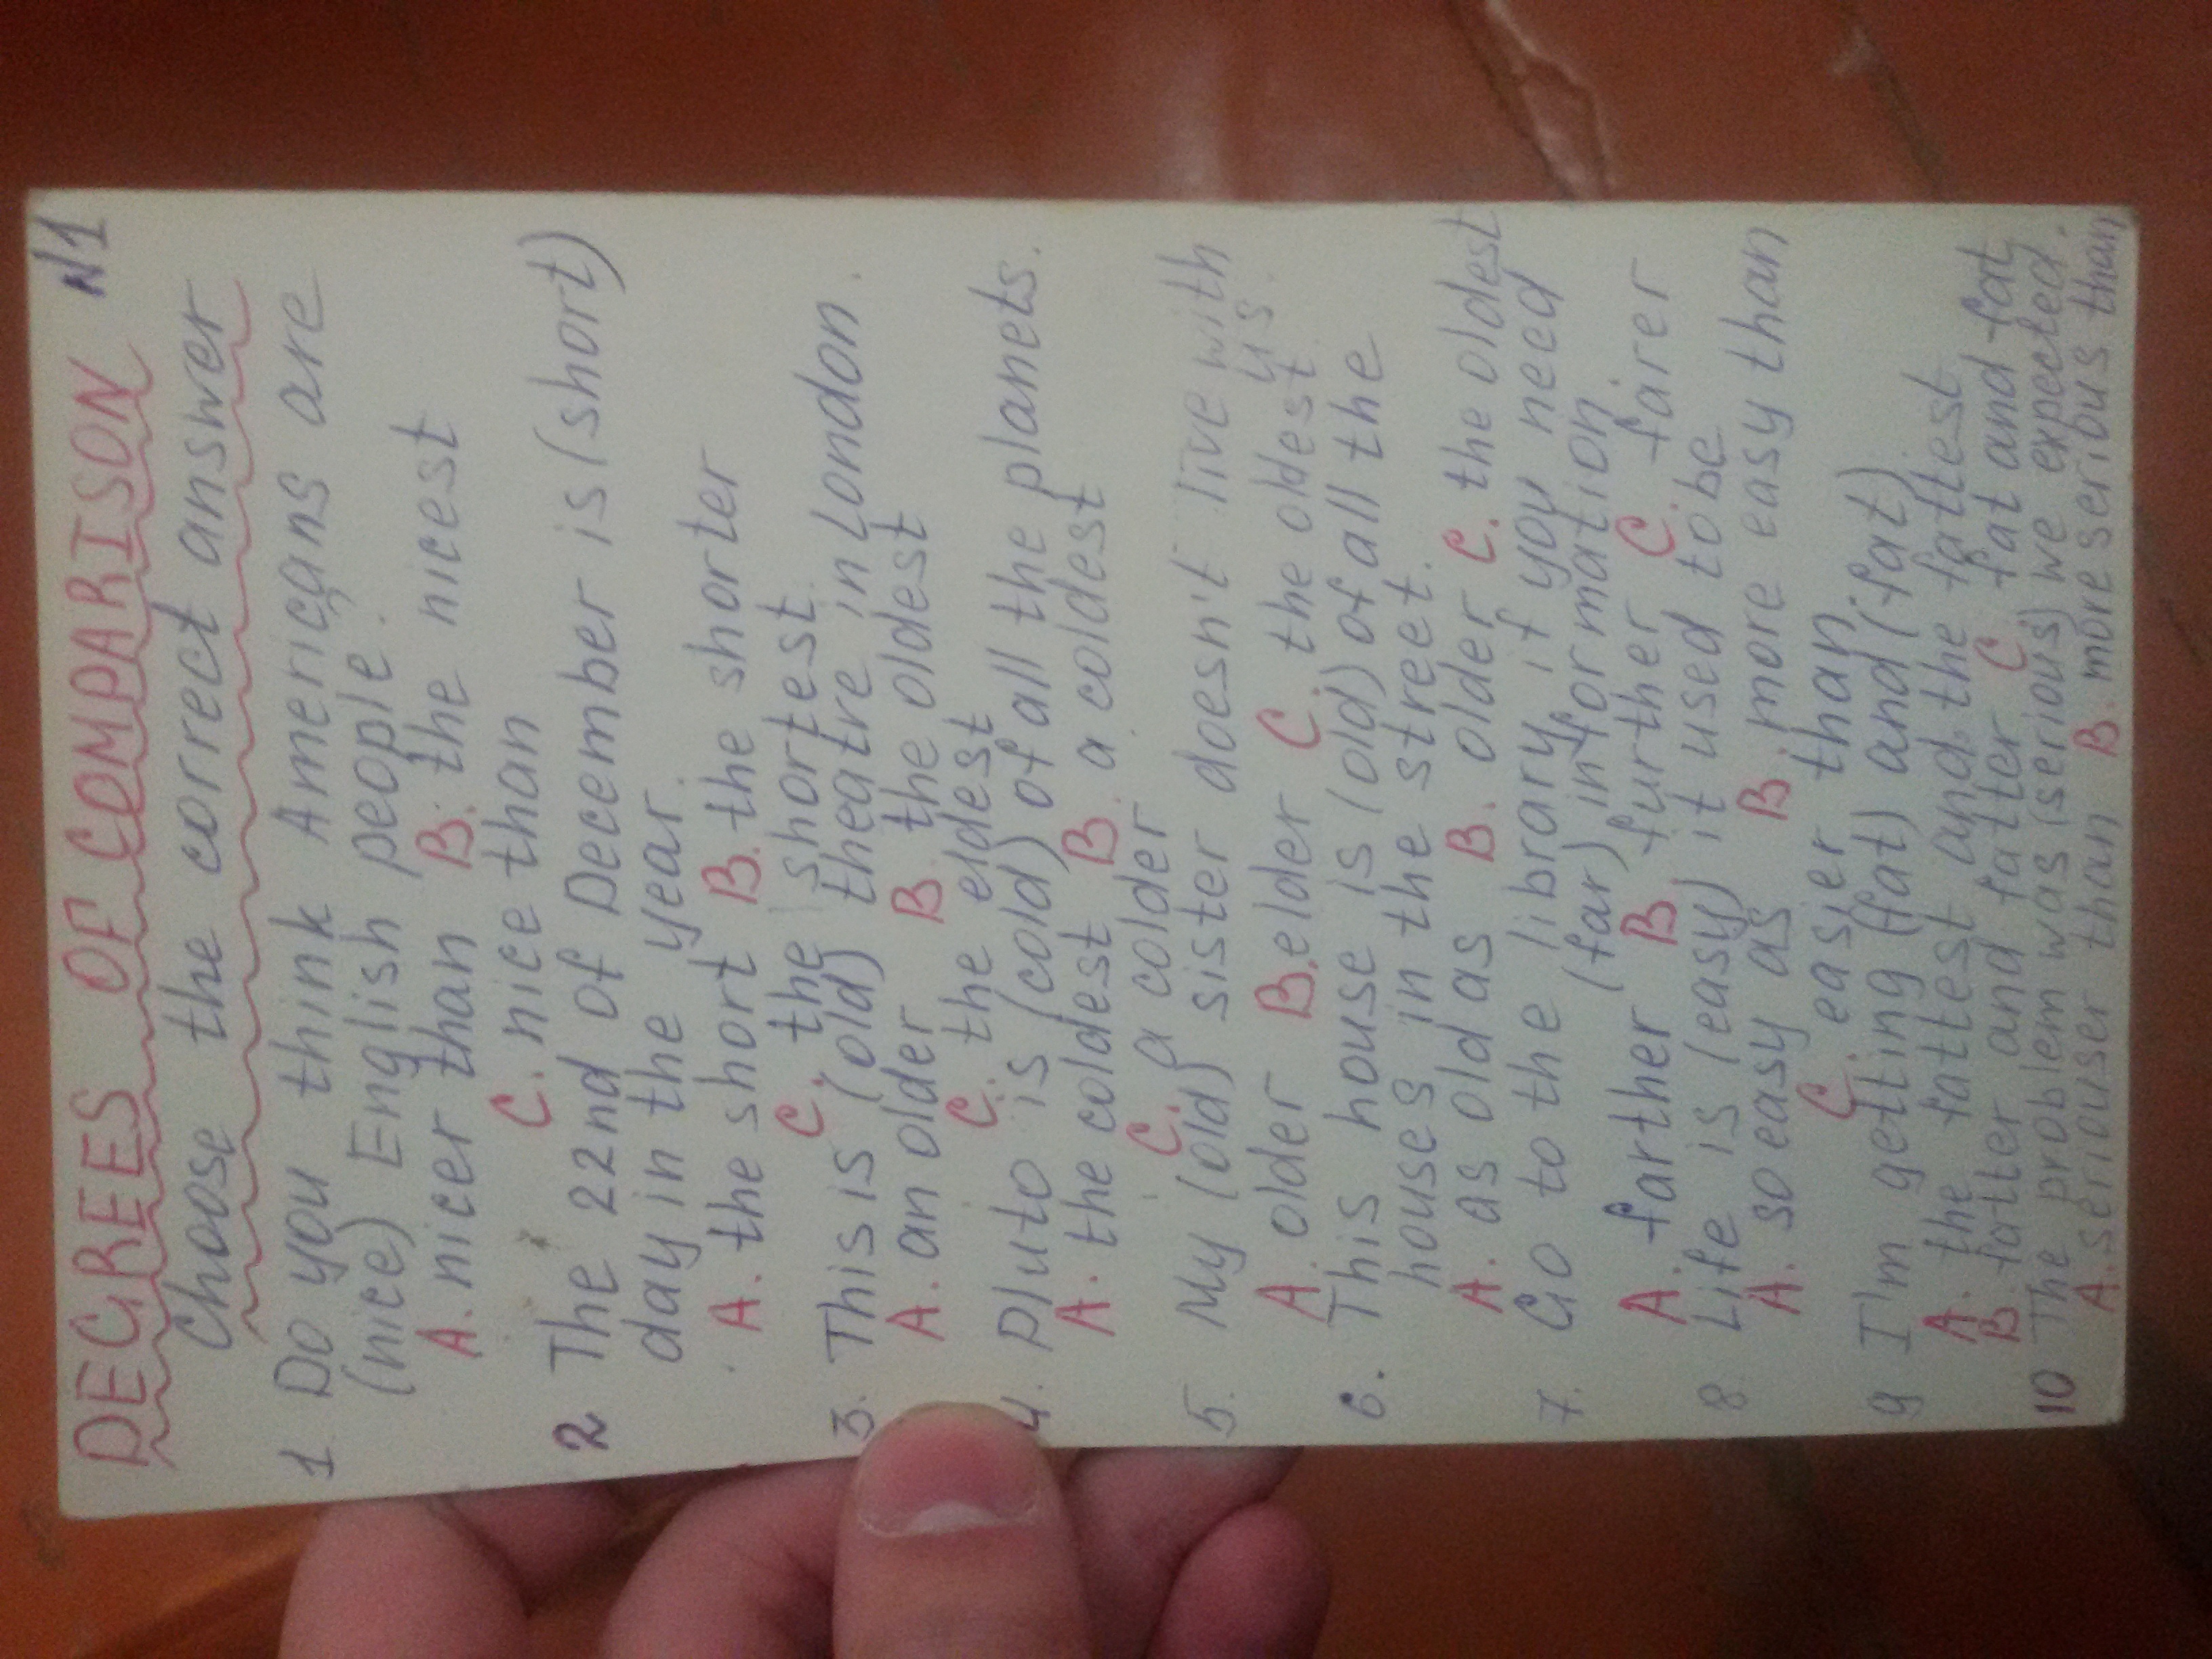 DEGREES OF COMPARISON N1
Choose the correct answer
1 Do you think Americans are
(nice) English people?
A. nicer than B. the nicest
C. nice than
2 The 22nd of December is (short)
day in the year.
A. the short B. the shorter
C. the shortest
3. This is (old) theatre in London.
A. an older B the oldest
C. the eldest
4. Pluto is (cold) of all the planets.
A. the coldest B. a coldest
C. a colder
5. My (old) sister doesn't live with
us.
A. older B. elder C. the oldest
6. This house is (old) of all the
houses in the street.
A. as old as B. older C. the oldest
7. Go to the library if you need
(far) information
A. farther B further C. fairer
8 Life is (easy) it used to be
A. so easy as B. more easy than
C. easier than
9 I'm getting (fat) and (fat)
A. the fattest and the fattest
B fatter and fatter C fat and fat
10 The problem was (serious) we expected.
A. seriouser than B. more serious than